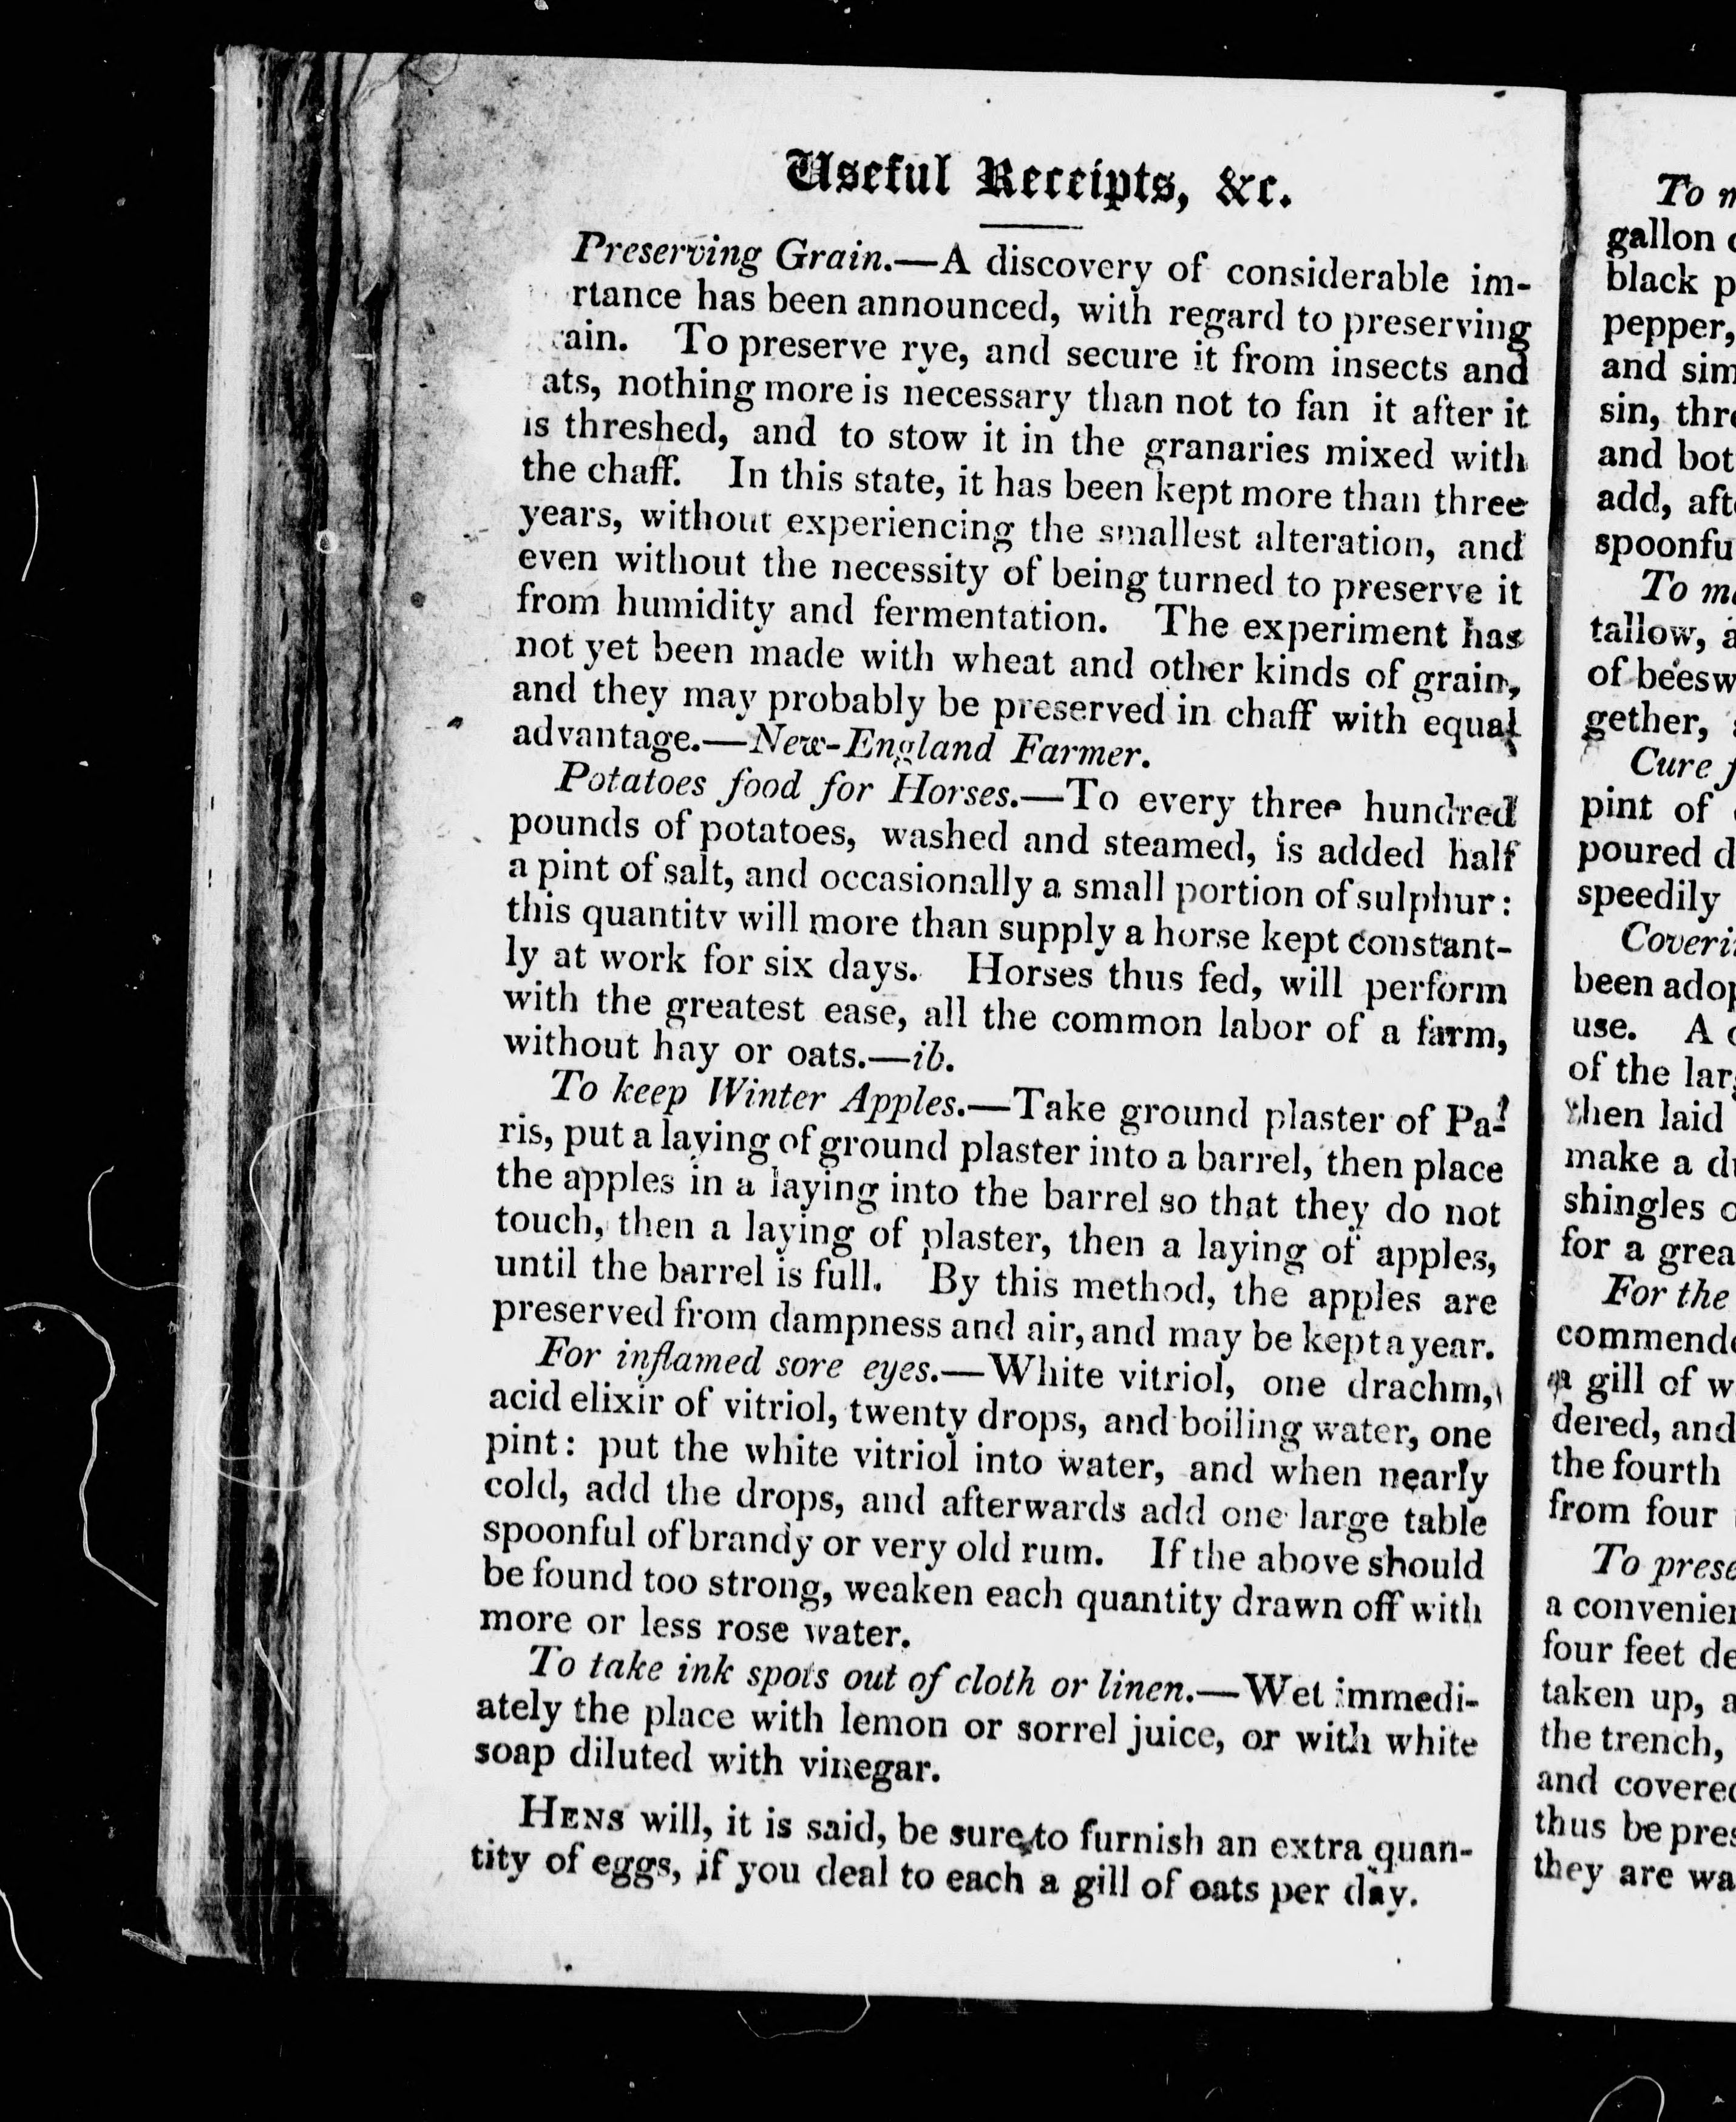 Useful Receipts, &c.
Preserving Grain.—A discovery of considerable im-
rtance has been announced, with regard to preserving
rain. To preserve rye, and secure it from insects and
ats, nothing more is necessary than not to fan it after it
is threshed, and to stow it in the granaries mixed with
the chaff. In this state, it has been kept more than three
years, without experiencing the smallest alteration, and
even without the necessity of being turned to preserve it
from humidity and fermentation. The experiment has
not yet been made with wheat and other kinds of grain,
and they may probably be preserved in chaff with equal
advantage.—New-England Farmer.
Potatoes food for Horses.—To every three hundred
pounds of potatoes, washed and steamed, is added half
a pint of salt, and occasionally a small portion of sulphur:
this quantity will more than supply a horse kept constant-
ly at work for six days. Horses thus fed, will perform
with the greatest ease, all the common labor of a farm,
without hay or oats.—ib.
To keep Winter Apples.—Take ground plaster of Pa-
ris, put a laying of ground plaster into a barrel, then place
the apples in a laying into the barrel so that they do not
touch, then a laying of plaster, then a laying of apples,
until the barrel is full. By this method, the apples are
preserved from dampness and air, and may be kept a year.
For inflamed sore eyes.—White vitriol, one drachm,
acid elixir of vitriol, twenty drops, and boiling water, one
pint: put the white vitriol into water, and when nearly
cold, add the drops, and afterwards add one large table
spoonful of brandy or very old rum. If the above should
be found too strong, weaken each quantity drawn off with
more or less rose water.
To take ink spots out of cloth or linen.—Wet immedi-
ately the place with lemon or sorrel juice, or with white
soap diluted with vinegar.
HENS will, it is said, be sure to furnish an extra quan-
tity of eggs, if you deal to each a gill of oats per day.
To
gallon
black
pepper,
and
sin,
and
add,
To
tallow,
of
gether,
Cure
pint of
poured
speedily
been
use. A
of the
then laid
make a
shingles
for a
For the
a gill of
dered, and
the fourth
from four
To
a
four feet
taken up,
the trench,
and
thus be
they are